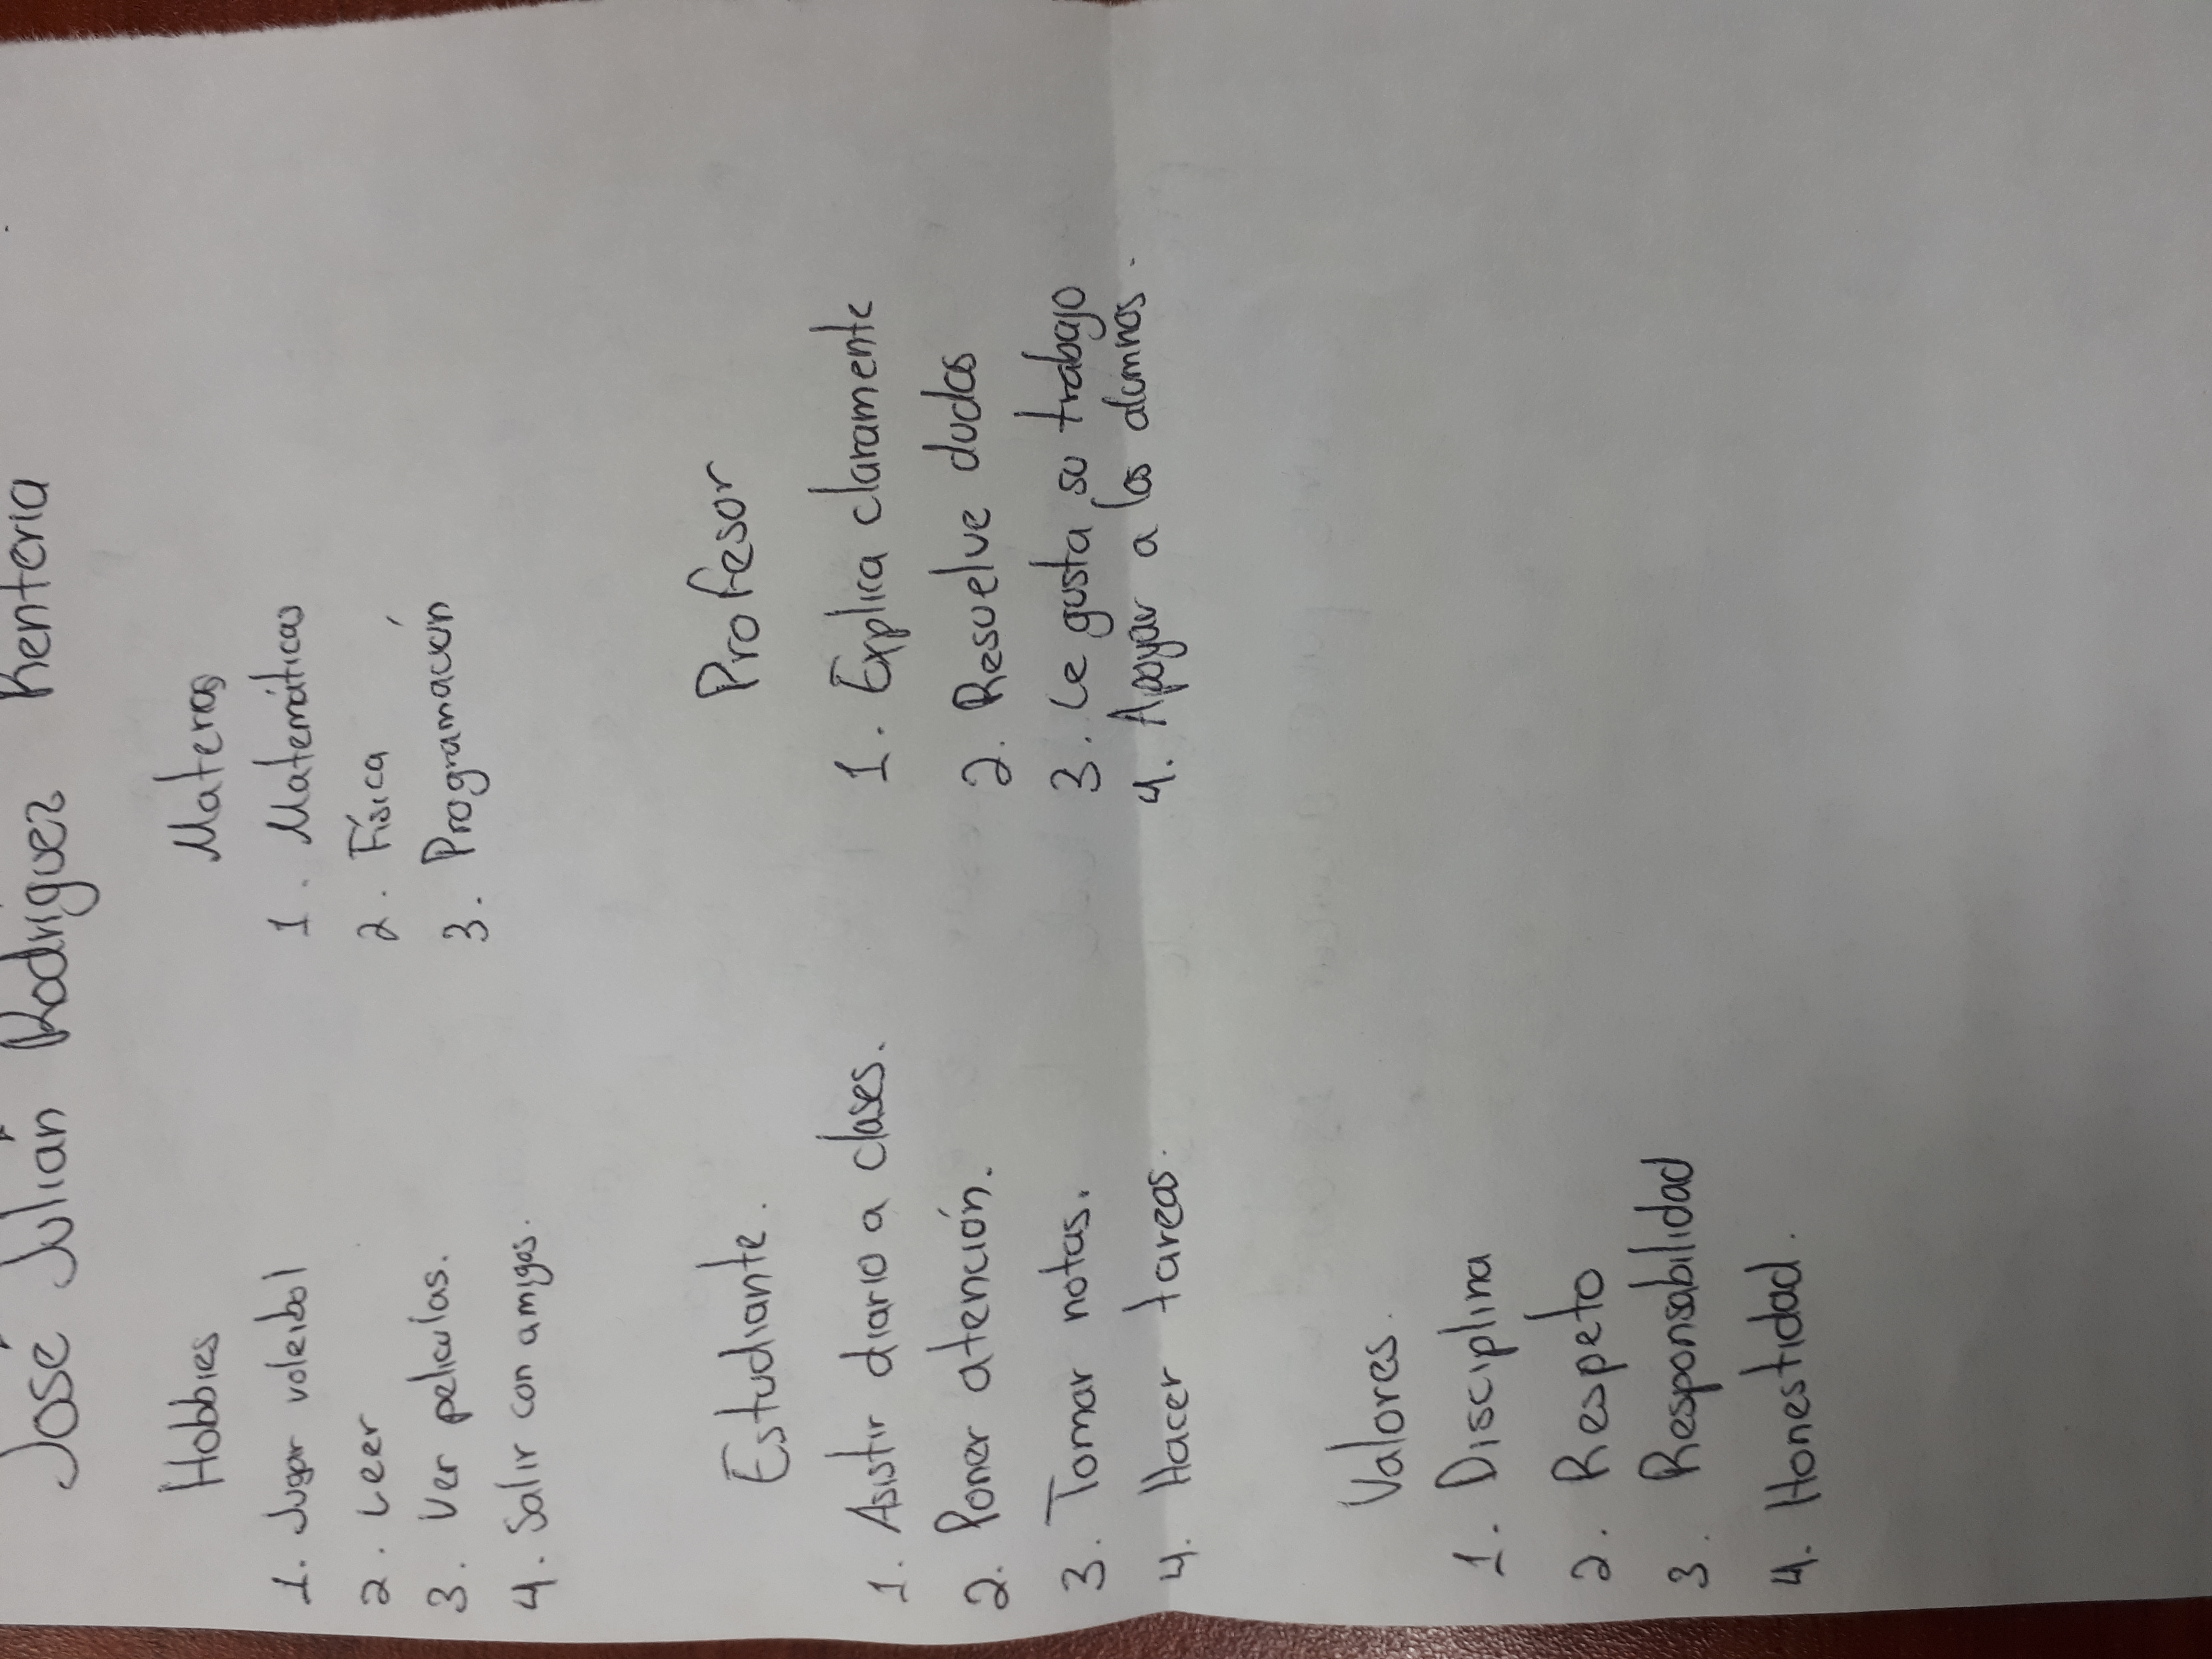 José Julián Rodríguez Rentería
Hobbies
1. Jugar voleibol
2. Leer
3. Ver peliculas.
4. Salir con amigos.
Materas
1. Matemáticas
2. Física
3. Programación
Estudiante.
1. Asistir diario a clases.
2. Poner atención.
3. Tomar notas.
4. Hacer tareas.
Profesor
1. Explica claramente
2. Resuelve dudas
3. Le gusta su trabajo
4. Apoyar a los alumnos.
Valores.
1. Disciplina
2. Respeto
3. Responsabilidad
4. Honestidad.